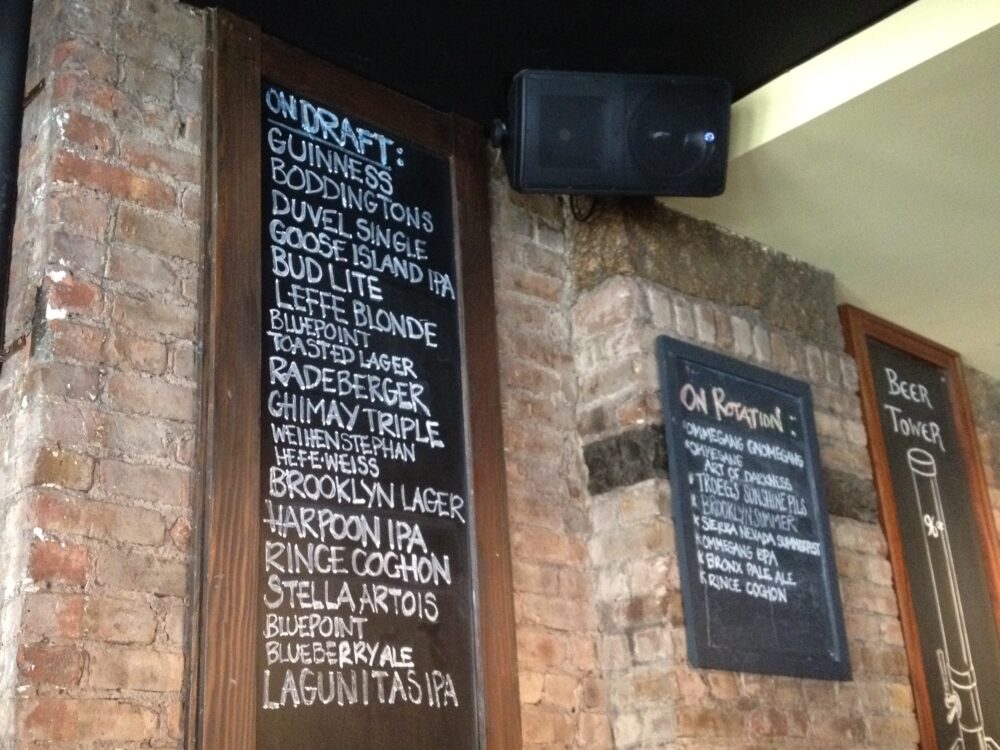 ON DRAFT:
GUINNESS
BODDINGTONS
DUVEL SINGLE
GOOSE ISLAND IPA
BUD LITE
LEFFE BLONDE
BLUEPOINT
TOASTED LAGER
RADEBERGER
GHIMAY TRIPLE
WEIHENSTEPHAN
HEFE-WEISS
BROOKLYN LAGER
HARPOON IPA
RINCE COGHON
STELLA ARTOIS
BLUEPOINT
BLUEBERRY ALE
LAGUNITAS IPA
ON ROTATION:
OMMEGANG GNOMEGANG
OMMEGANG
ART OF DARKNESS
TROEGS SUNSHINE PILS
BROOKLYN SUMMER
SIERRA NEVADA SUMMERFEST
OMMEGANG BPA
BRONX PALE ALE
RINCE COGHON
BEER
TOWER